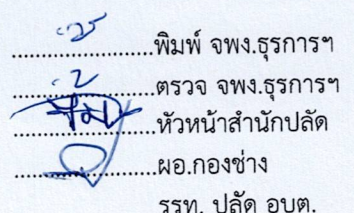 ....................พิมพ์ จพง.ธุรการฯ
....................ตรวจ จพง.ธุรการฯ
....................หัวหน้าสำนักปลัด
....................ผอ.กองช่าง
รรท. ปลัด อบต.